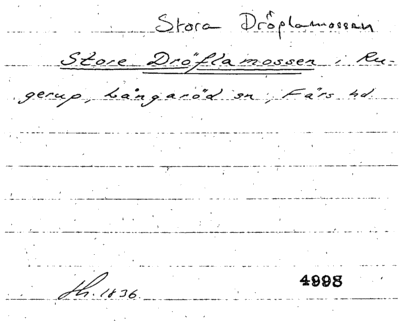 Stora Dröplamossen
Store Dröflamossen i Ru-
gerup, Långaröd sn, Färs hd.
Jh. 1836
4998